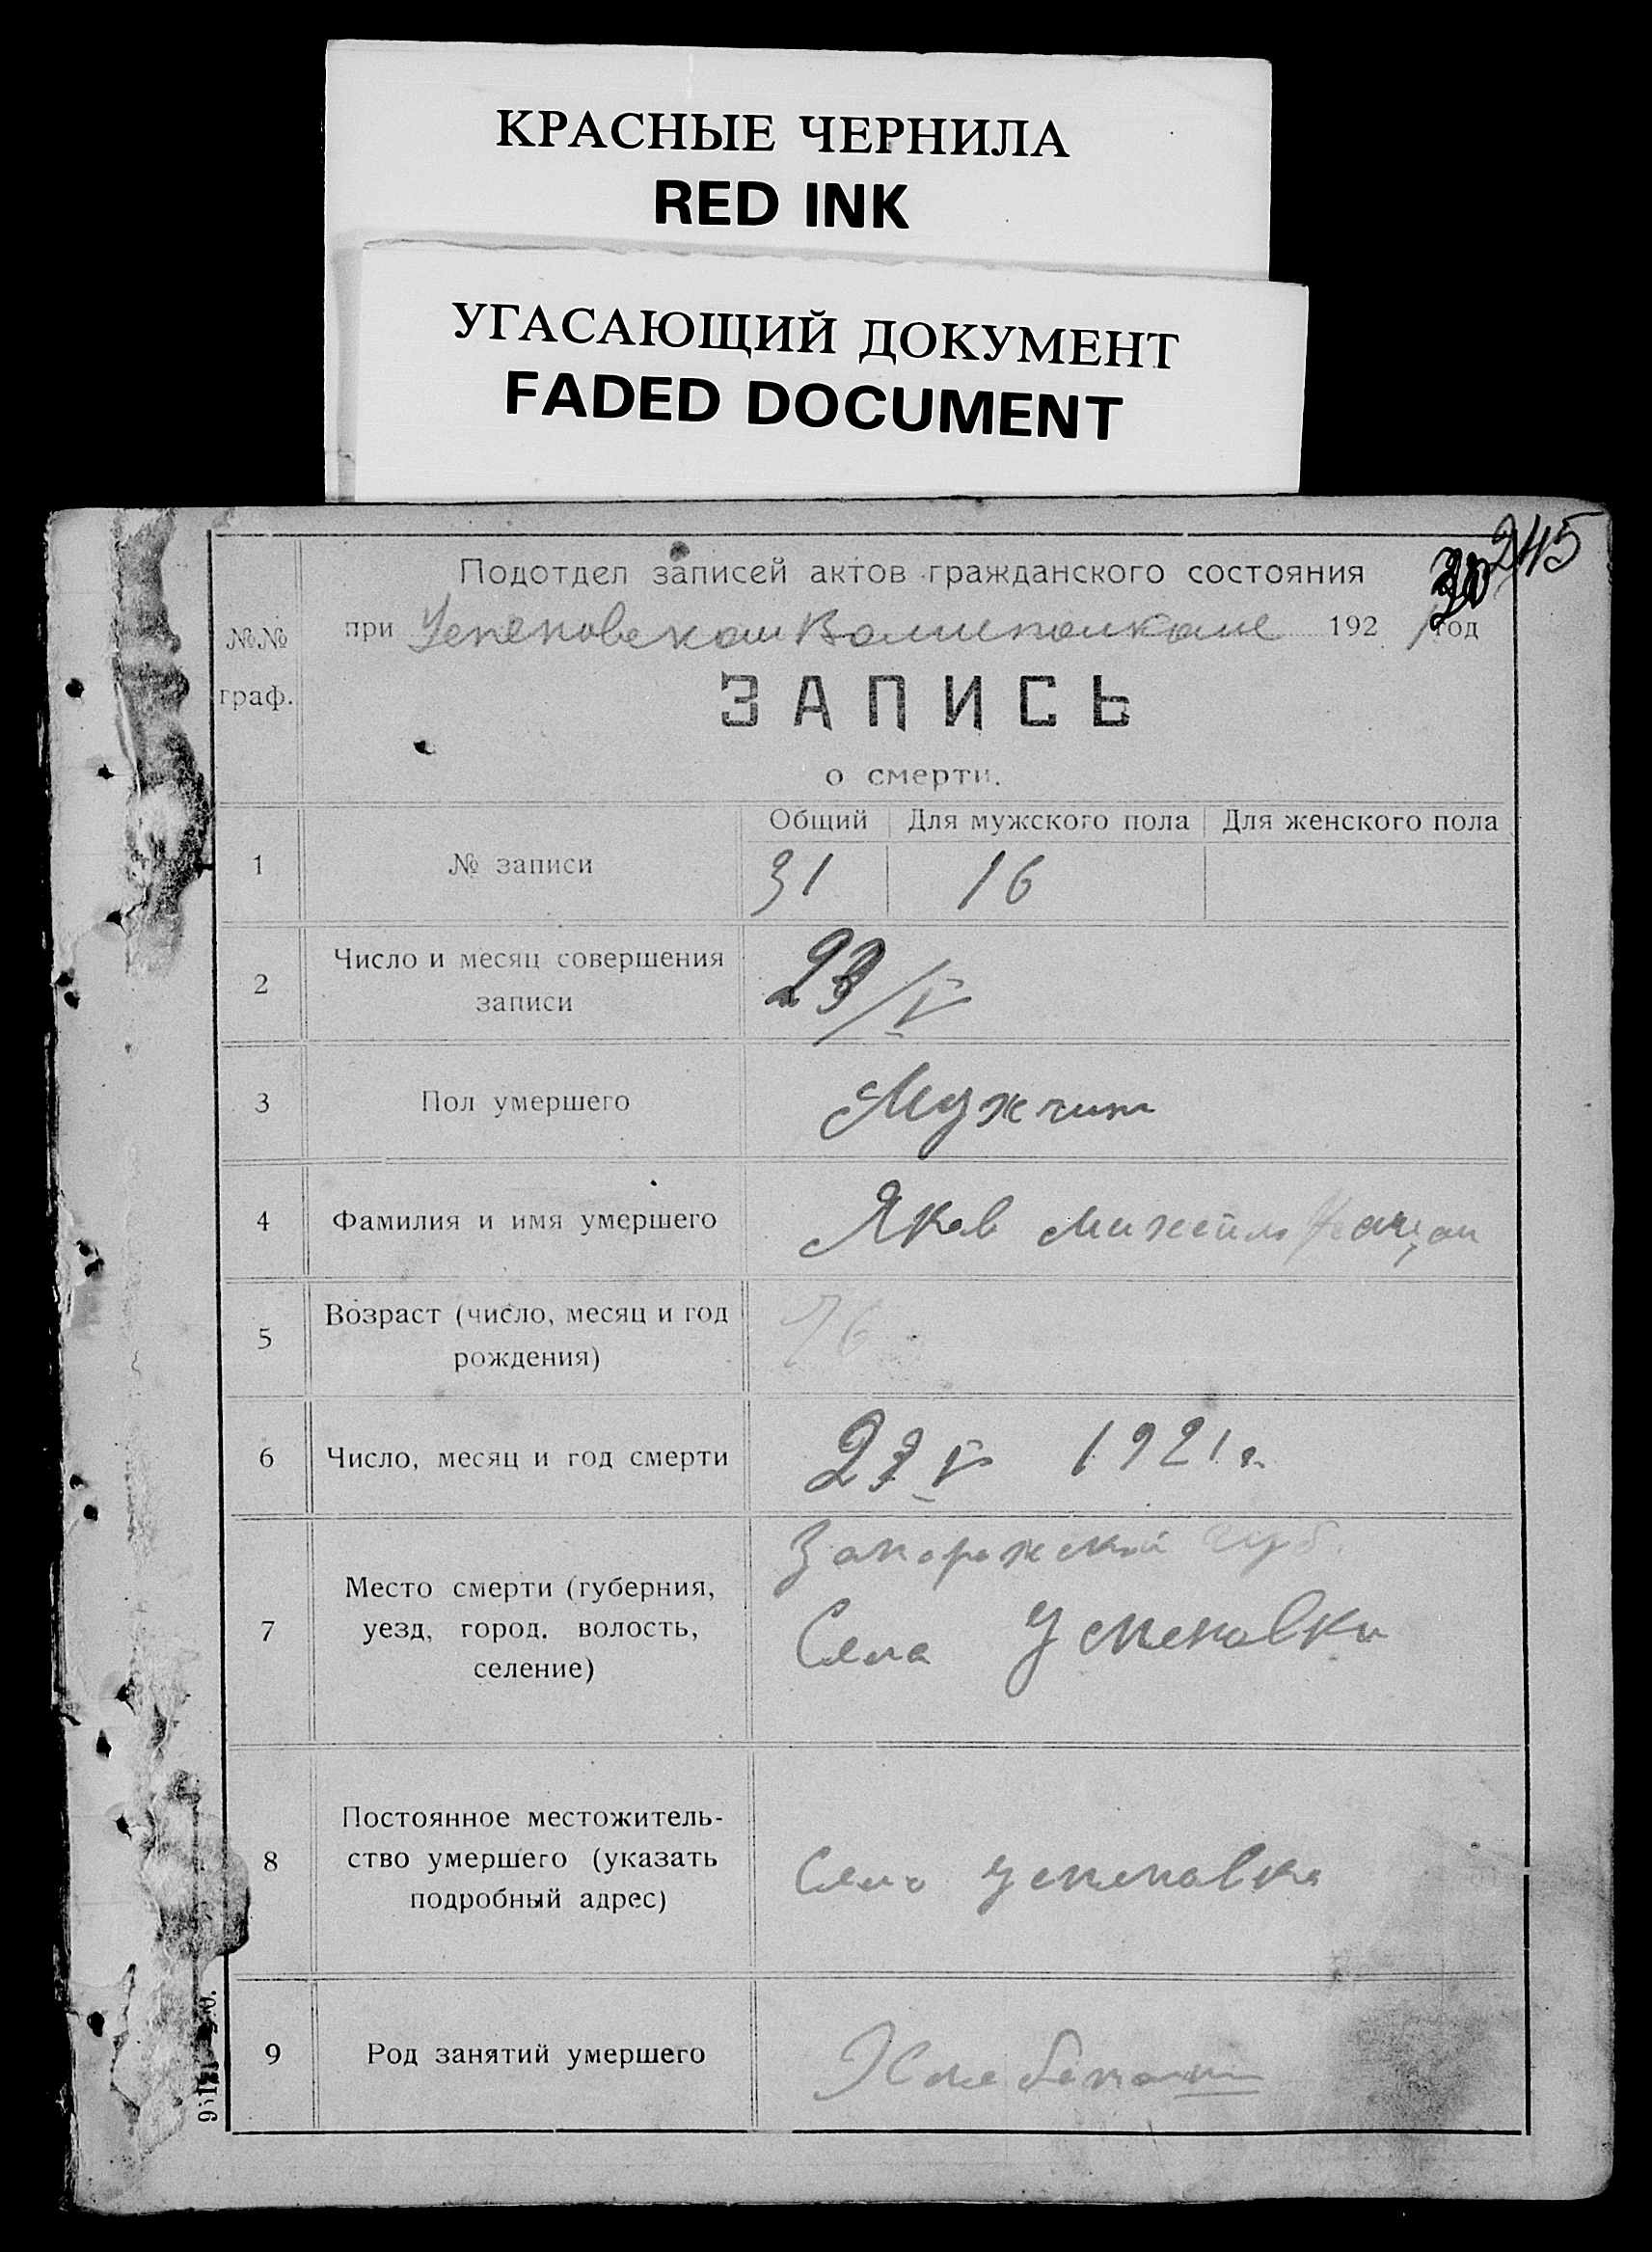 КРАСНЫЕ ЧЕРНИЛА
RED INK
УГАСАЮЩИЙ ДОКУМЕНТ
FADED DOCUMENT
245
Подотдел записей актов гражданского состояния
при 192 1 год
№№ граф.
ЗАПИСЬ
о смерти.
Общий Для мужского пола Для женского пола
1 № записи 31 16
2 Число и месяц совершения
записи
23/V
3 Пол умершего Мужчин
4 Фамилия и имя умершего Яков
5 Возраст (число, месяц и год
рождения)
76
6 Число, месяц и год смерти V 1921 г.
7 Место смерти (губерния,
уезд, город, волость,
селение)
Запорожской губ.
Села Успеновки
8 Постоянное местожитель-
ство умершего (указать
подробный адрес)
Село Успеновка
9 Род занятий умершего